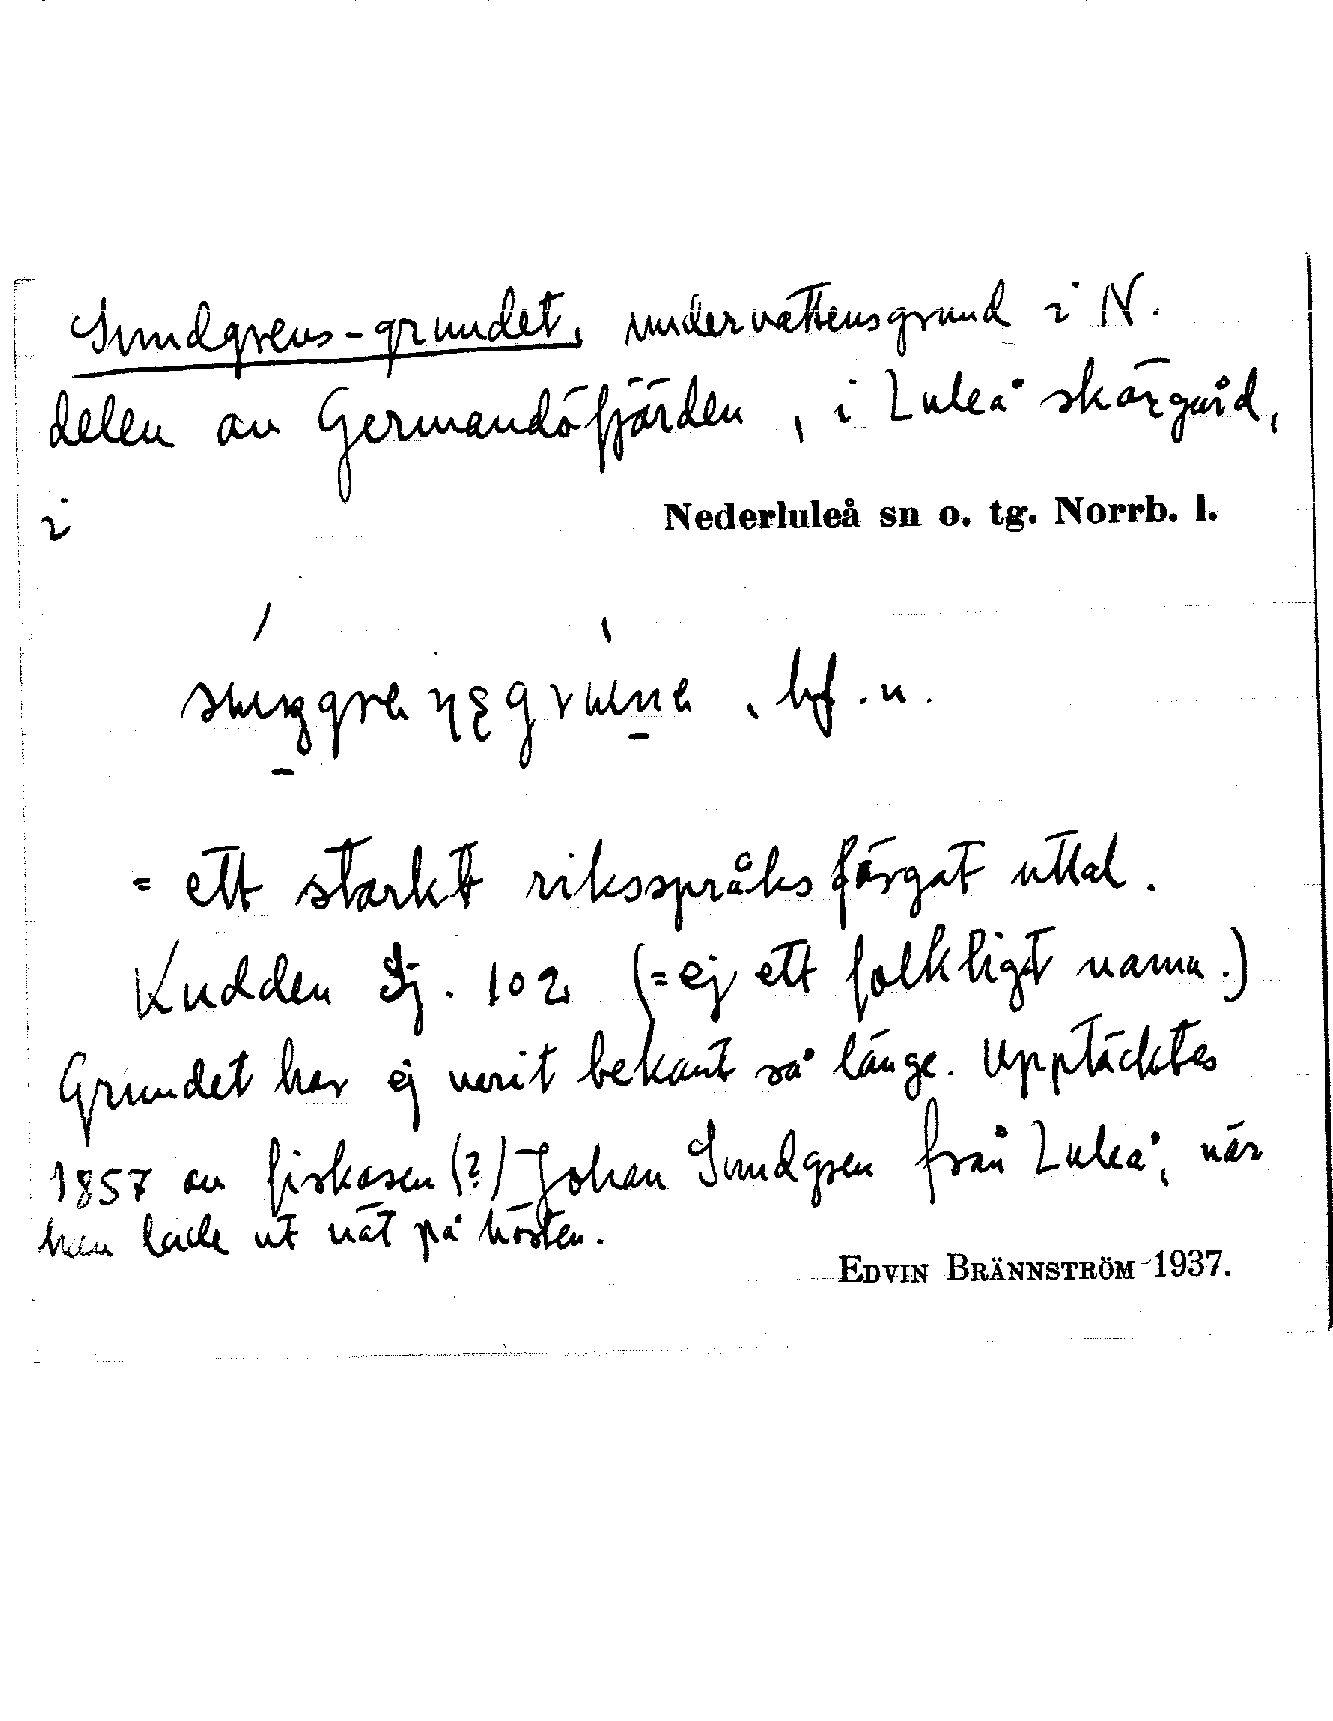 Sundgrens-grundet, undervattensgrund i N.
delen av Germandöfjärden, i Luleå skärgård,
i Nederluleå sn o. tg. Norrb. l.
bf. n.
= ett starkt riksspråksfärgat uttal.
Kudden Sj. 102 (= ej ett folkligt namn.)
Grundet har ej varit bekant så länge. Upptäcktes
1857 av fiskaren (?) Johan Sundgren från Luleå, när
han lade ut nät på hösten.
EDVIN BRÄNNSTRÖM 1937.